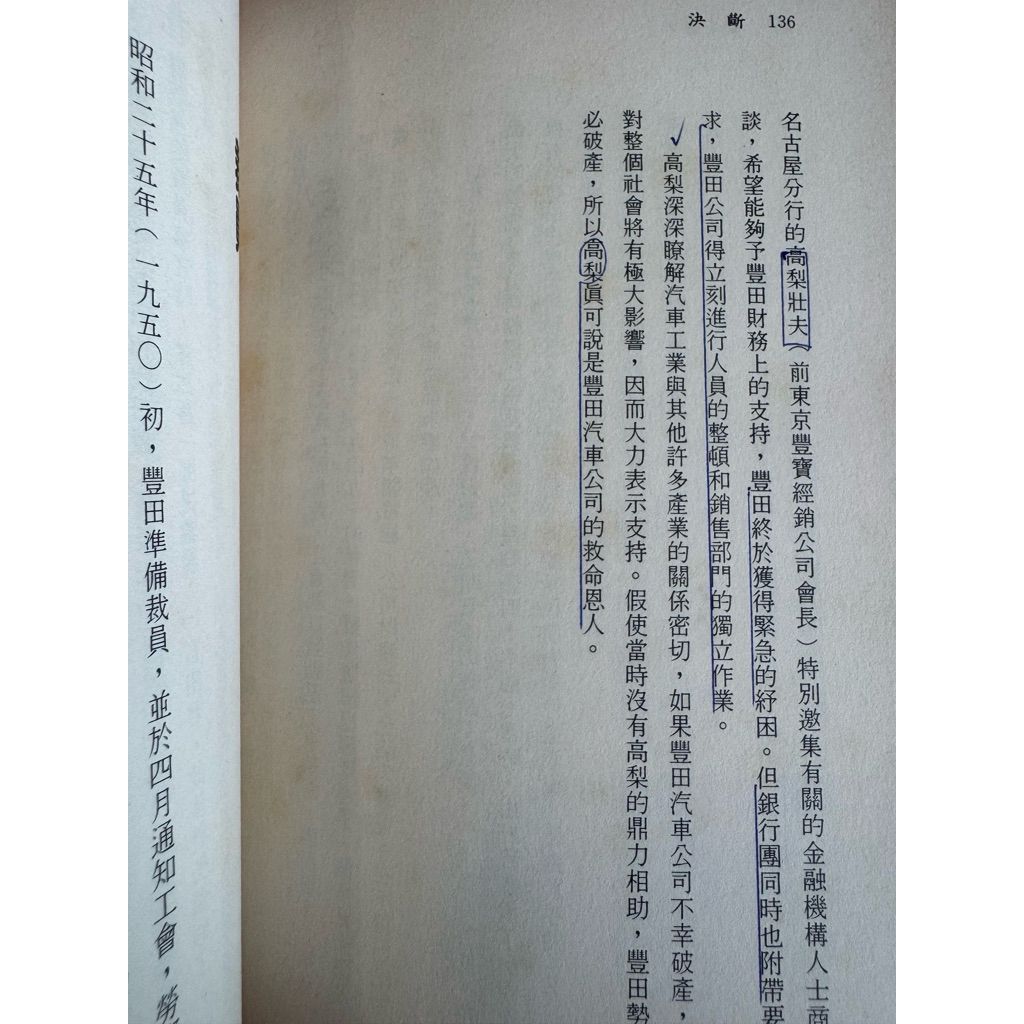 決斷 136
名古屋分行的高梨壯夫（前東京豐寶經銷公司會長）特別邀集有關的金融機構人士商
談，希望能夠予豐田財務上的支持，豐田終於獲得緊急的紓困。但銀行團同時也附帶要
求，豐田公司得立刻進行人員的整頓和銷售部門的獨立作業。
高梨深深瞭解汽車工業與其他許多產業的關係密切，如果豐田汽車公司不幸破產，
對整個社會將有極大影響，因而大力表示支持。假使當時沒有高梨的鼎力相助，豐田勢
必破產，所以高梨眞可說是豐田汽車公司的救命恩人。
昭和二十五年（一九五〇）初，豐田準備裁員，並於四月通知工會，勞